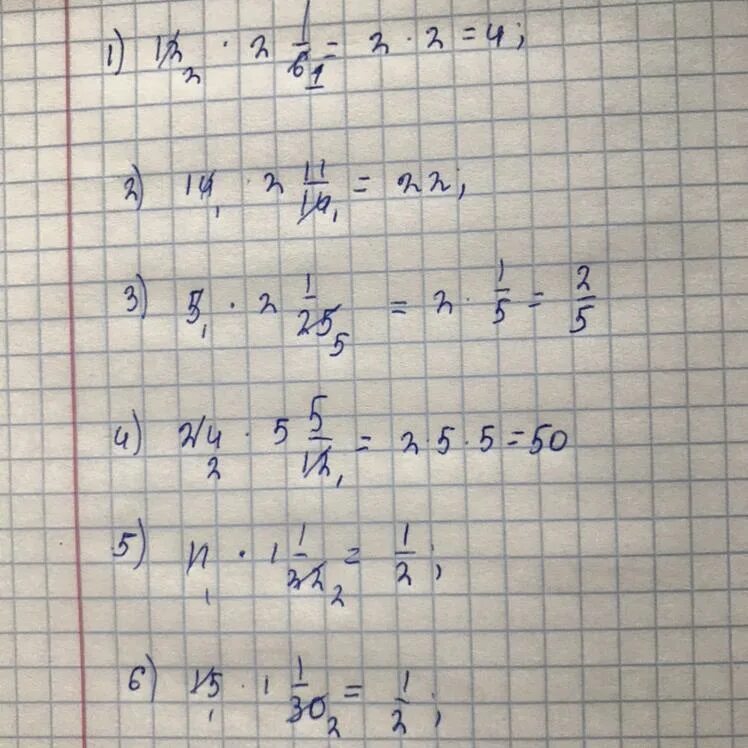 1) 12 2 · 2 1/6 1 = 2 · 2 = 4;
2) 14 1 · 2 11/14 1 = 22;
3) 5 1 · 2 1/25 5 = 2 · 1/5 = 2/5
4) 24 2 · 5 5/12 1 = 2 · 5 · 5 = 50
5) 11 1 · 1 1/22 2 = 1/2;
6) 15 1 · 1 1/30 2 = 1/2;